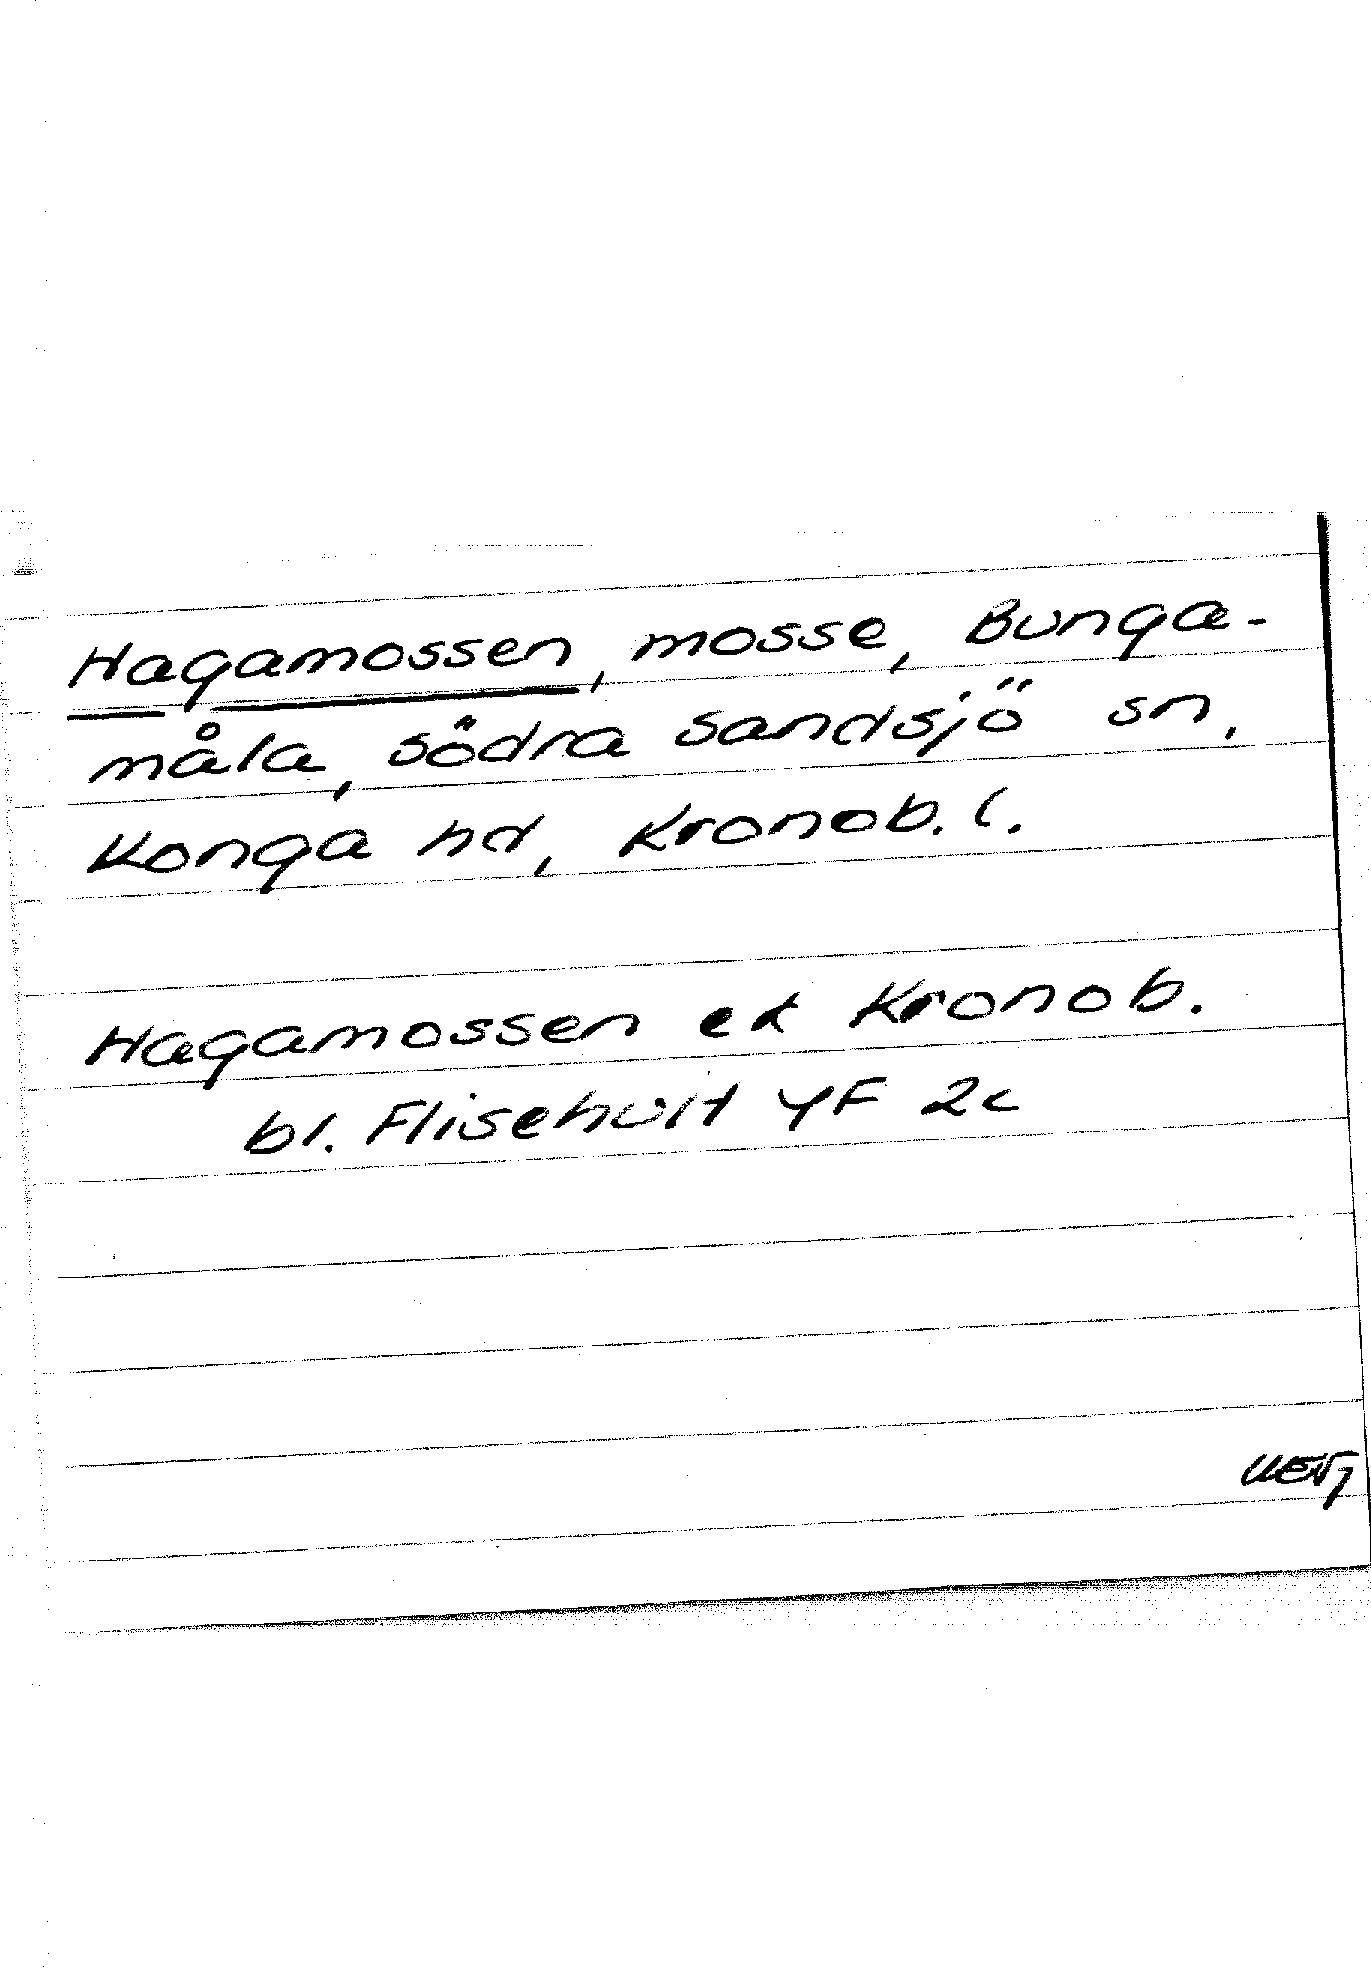 Hagamossen, mosse, Bunga-
måla, södra sandsjö sn,
Konga hd, Kronob. l.
Hagamossen ek Kronob.
bl. Flisehult YF 2c